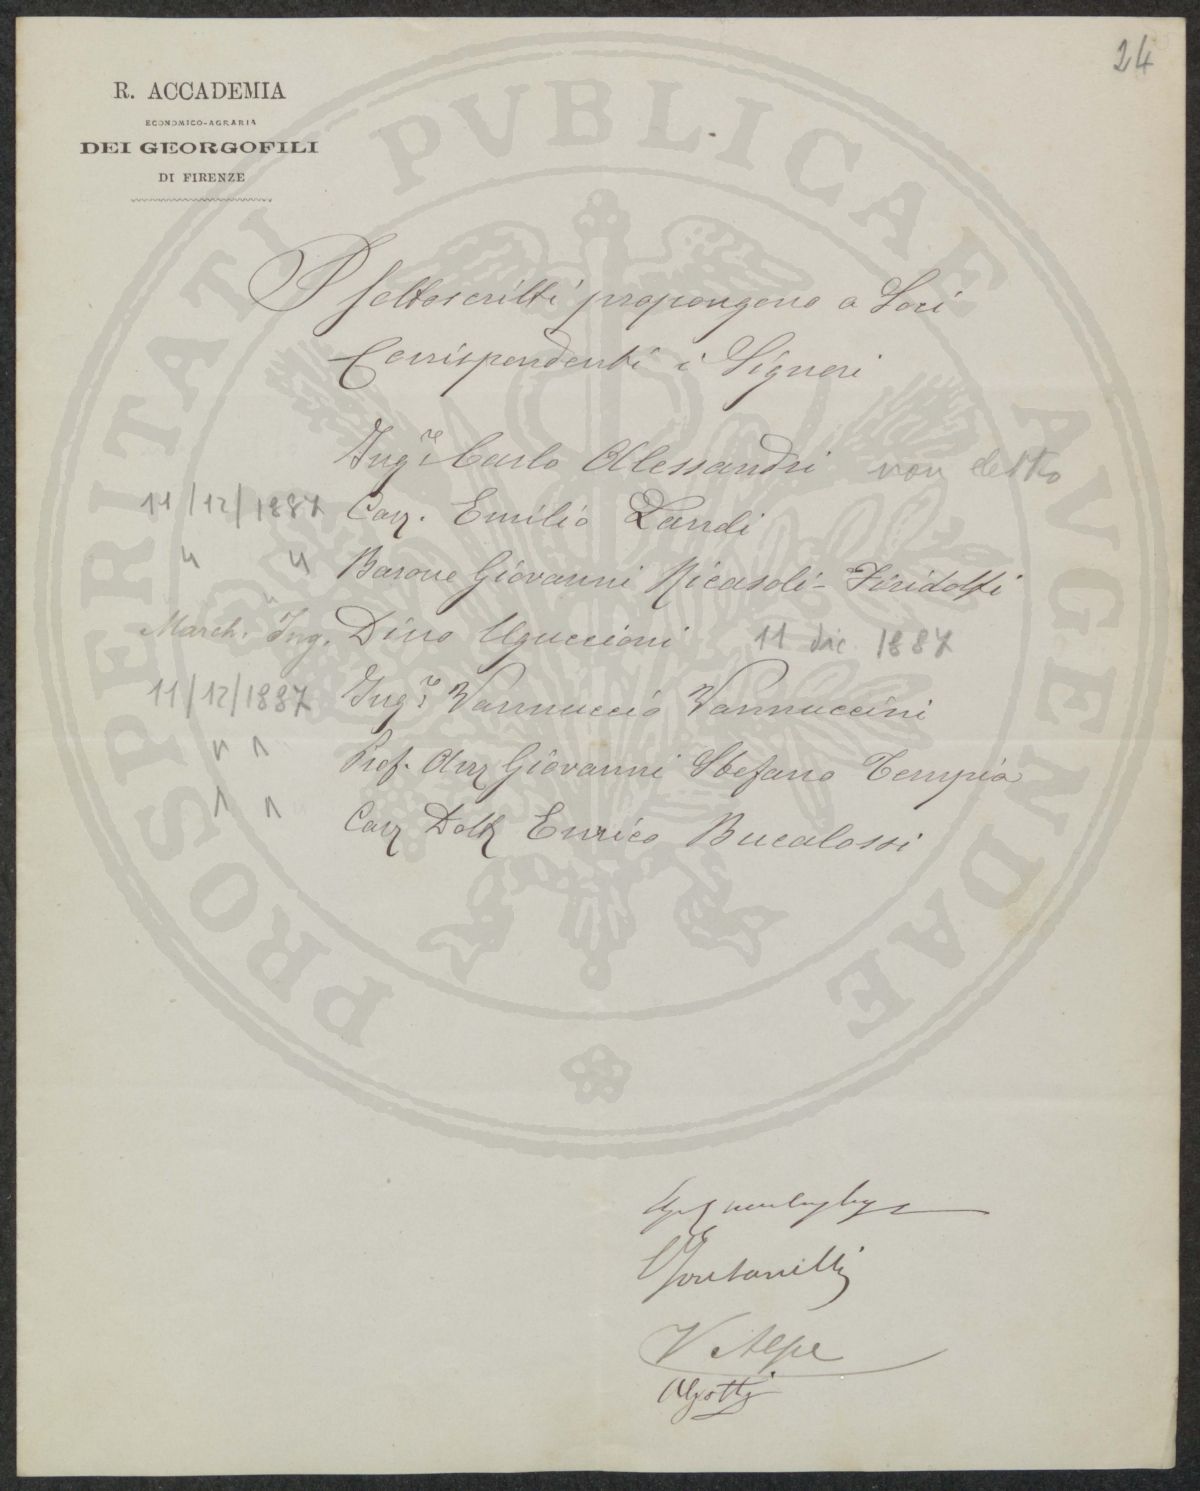 24
R. ACCADEMIA
ECONOMICO-AGRARIA
DEI GEORGOFILI
DI FIRENZE
PROSPERITATI PVBLICAE AVGENDAE
I sottoscritti propongono a Soci
Corrispondenti i Signori
Ing.re Carlo Alessandri non eletto
11/12/1887 Cav. Emilio Landi
" " Barone Giovanni Ricasoli-Firidolfi
March. Ing. Dino Uguccioni 11 dic. 1887
11/12/1887 Ing.re Vannuccio Vannuccini
" " Prof. Avv Giovanni Stefano Tempia
" " Cav Dott Enrico Bucalossi
C Fontanelli
V. Alpe